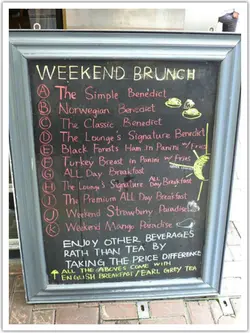 WEEKEND BRUNCH
A The Simple Benedict
B Norwegian Benedict
C The Classic Benedict
D The Lounge's Signature Benedict
E Black Forests Ham in Panini w/ FRIES
F Turkey Breast in Panini w/ FRIES
G All Day Breakfast
H The Lounge's Signature All Day Breakfast
I The Premium All Day Breakfast
J Weekend Strawberry Paradise
K Weekend Mango Paradise
ENJOY OTHER BEVERAGES
RATH THAN TEA BY
TAKING THE PRICE DIFFERENCE
ALL THE ABOVES COME WITH
ENGLISH BREAKFAST/EARL GREY TEA